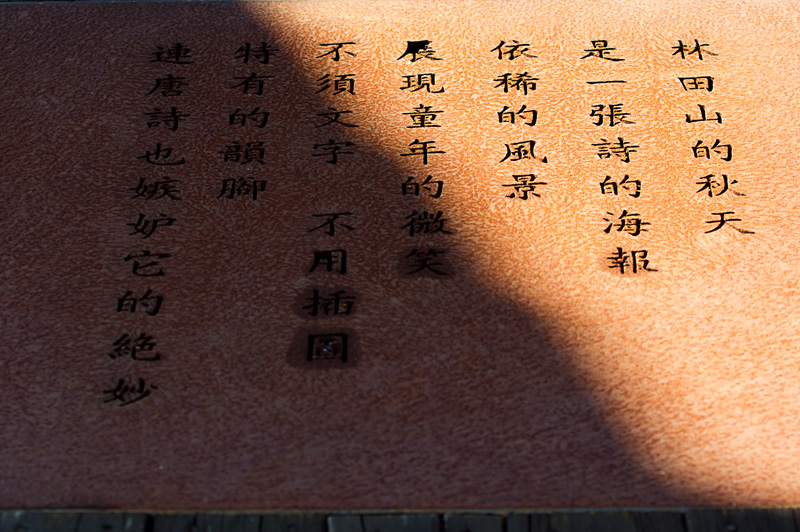 林田山的秋天
是一張詩的海報
依稀的風景
展現童年的微笑
不須文字　不用插圖
特有的韻腳
連唐詩也嫉妒它的絕妙